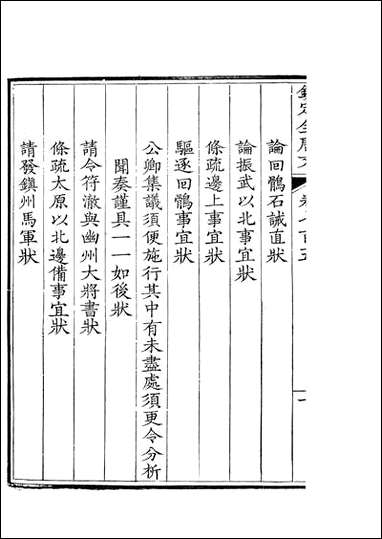 欽定全唐文
卷七百五
一
論回鶻石誡直狀
論振武以北事宜狀
條疏邊上事宜狀
驅逐回鶻事宜狀
公卿集議須便施行其中有未盡處須更令分析
聞奏謹具一一如後狀
請令符澈與幽州大將書狀
條疏太原以北邊備事宜狀
請發鎮州馬軍狀